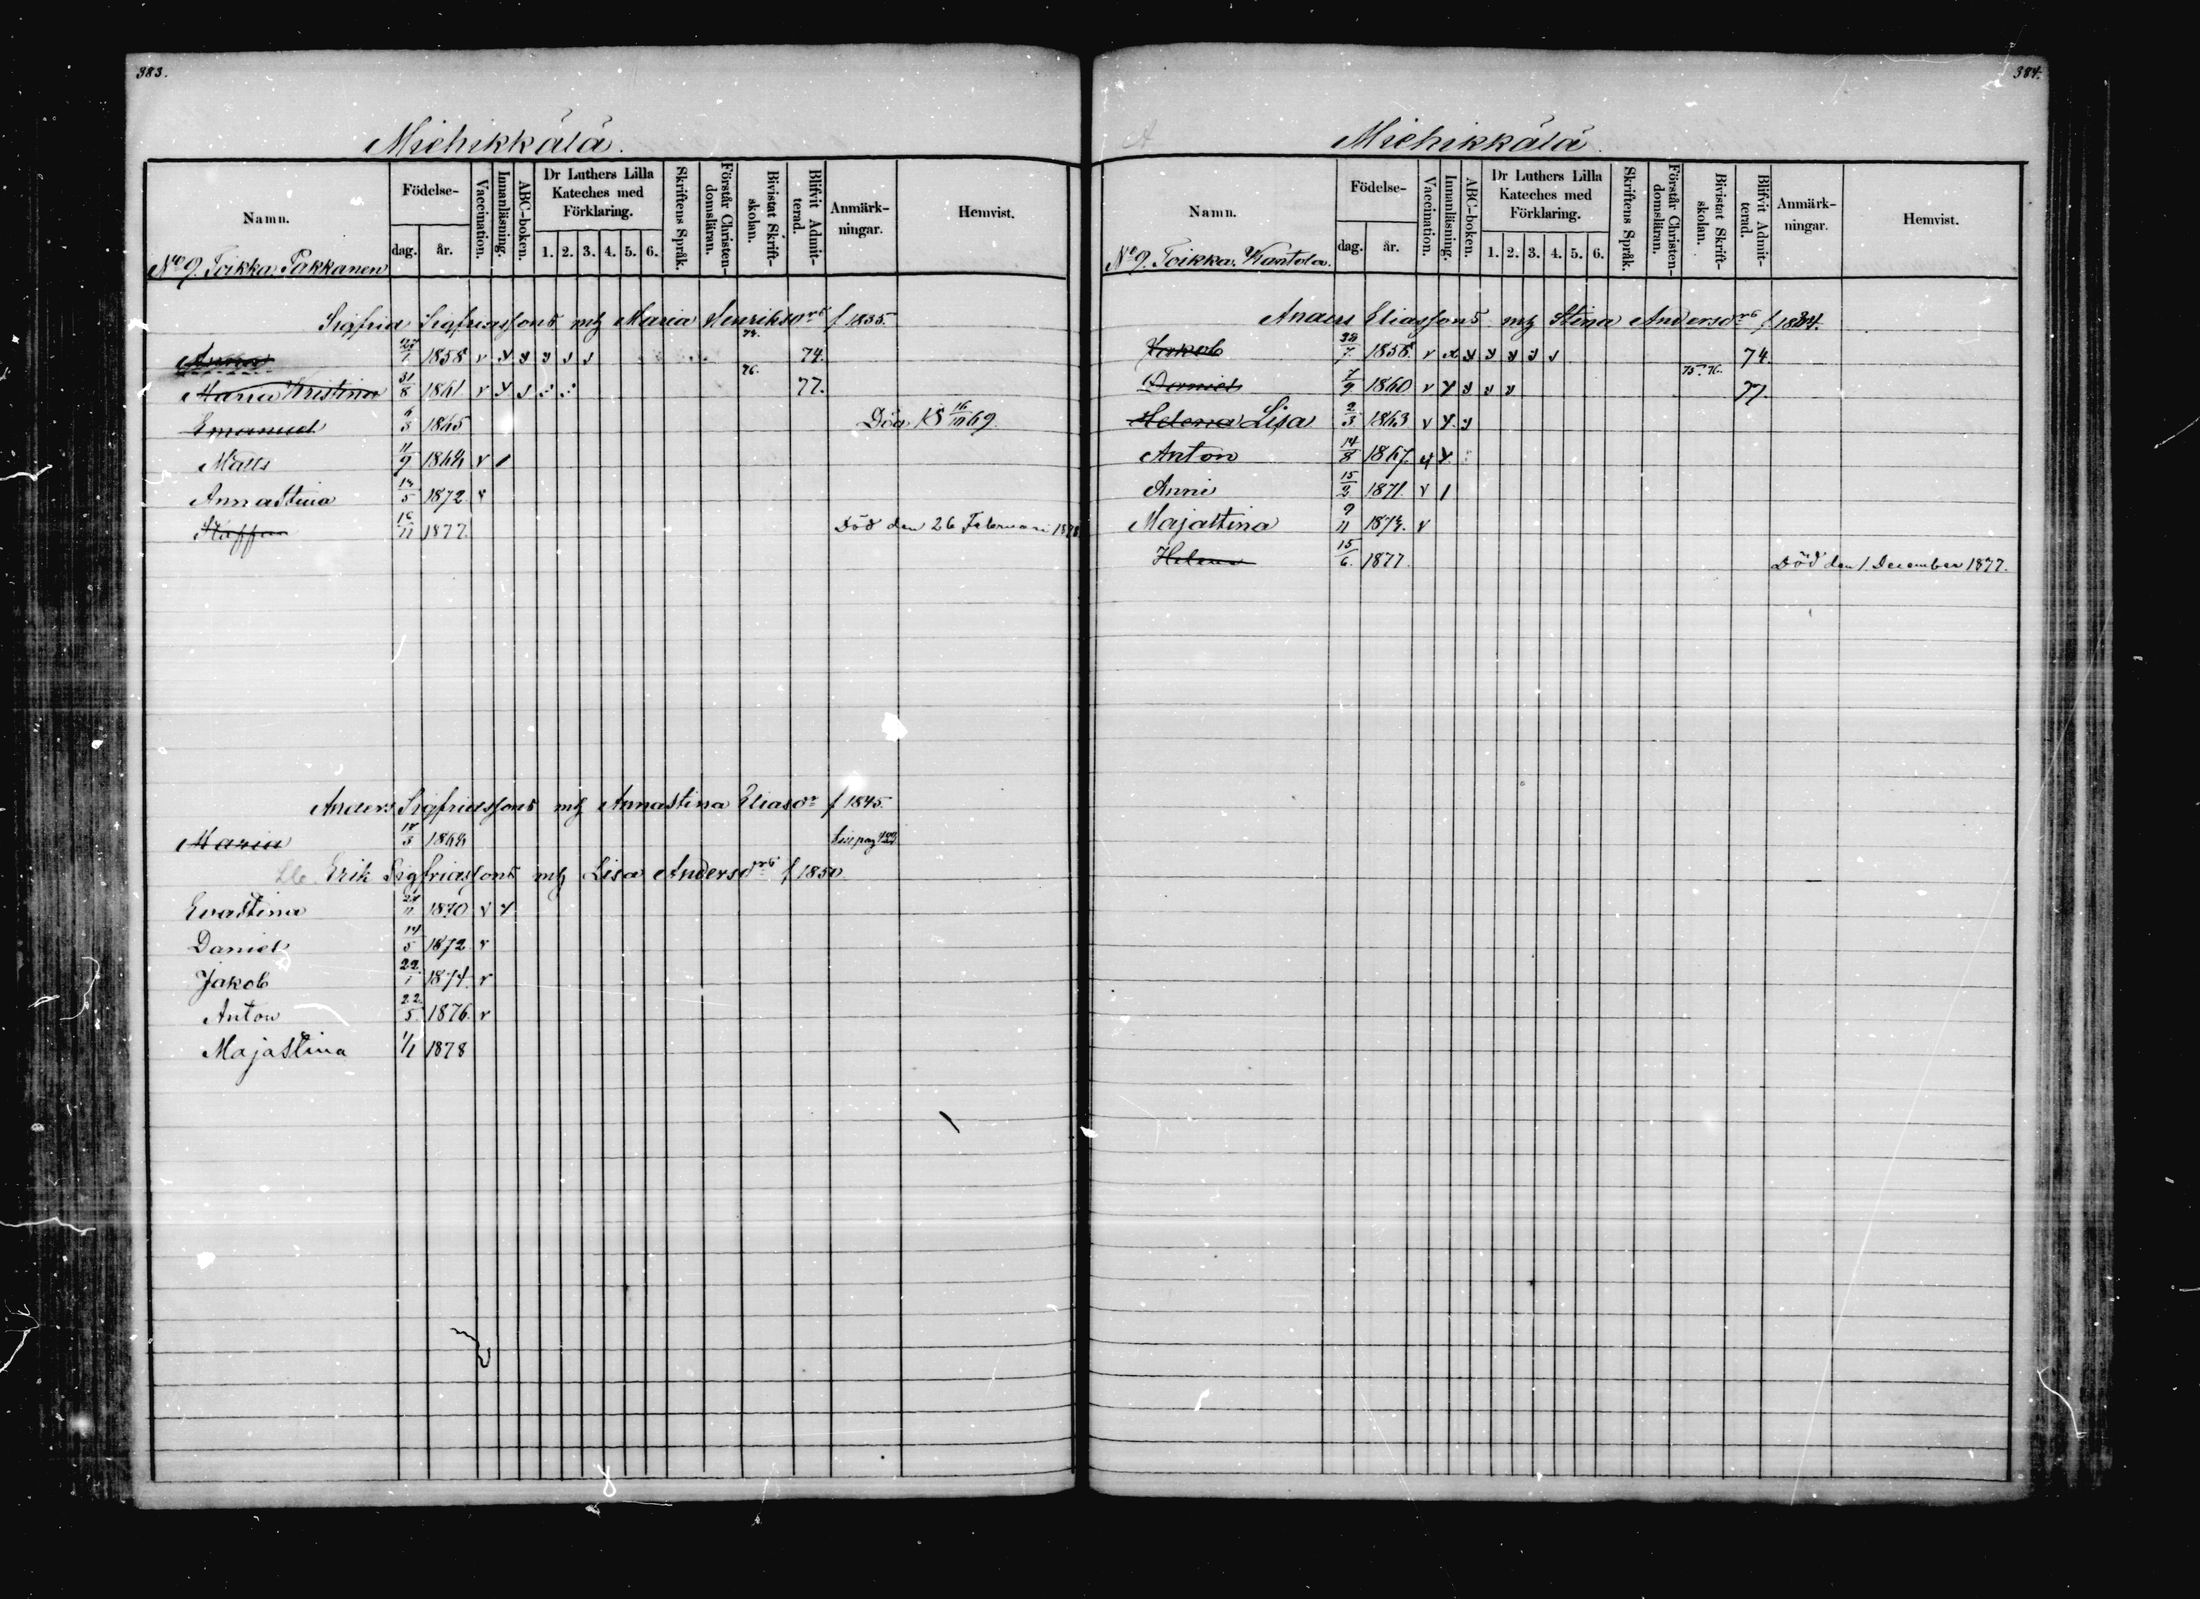 383.
Miehikkälä.
Namn.
Födelse-
dag.
år.
Vaccination.
Innanläsning.
ABC-boken.
Dr Luthers Lilla Kateches med Förklaring.
1. 2. 3. 4. 5. 6.
Skriftens Språk.
Förstår Christendomsläran.
Bivistat Skriftskolan.
Blifvit Admitterad.
Anmärkningar.
Hemvist.
No 9. Toikka Pakkanen
Sigfrid Sigfridssons mh Maria Henriksdrs f 1835.
Anna 27/1 1858 v y y y 74. 74.
Maria Kristina 31/8 1861 v y 76. 77.
Emanuel 6/3 1865 Död 18 16/10 69.
Matts 11/9 v
Annastina 5 1872 v
Staffan 16/11 1877. Död den 26 Februari 1878
Anders Sigfridssons mh Annastina Eliasdr f 1845.
Maria 18/3
Erik Sigfridssons mh Lisa Andersdrs f 1850.
Evastina 24/11 1870 v y
Daniel 14/5 1872 v
Jakob 22/1 1874. v
Anton 22./5 1876. v
Majastina 1/1 1878
384.
Miehikkälä.
Namn.
Födelse-
dag.
år.
Vaccination.
Innanläsning.
ABC-boken.
Dr Luthers Lilla Kateches med Förklaring.
1. 2. 3. 4. 5. 6.
Skriftens Språk.
Förstår Christendomsläran.
Bivistat Skriftskolan.
Blifvit Admitterad.
Anmärkningar.
Hemvist.
No 9. Toikka. Kantola.
Anders Eliassons mh Stina Andersdrs f
Jakob 7. 1858. v y y y y 74.
Daniel 7/9 1860 v y y y y 75. 76. 77.
Helena Lisa 2/3 1863 v y y
Anton 14/8 1867. y y
Anni 15/2 1871. v 1
Majastina 9/11 v
Helena 15/6. 1877. Död den 1 December 1877.